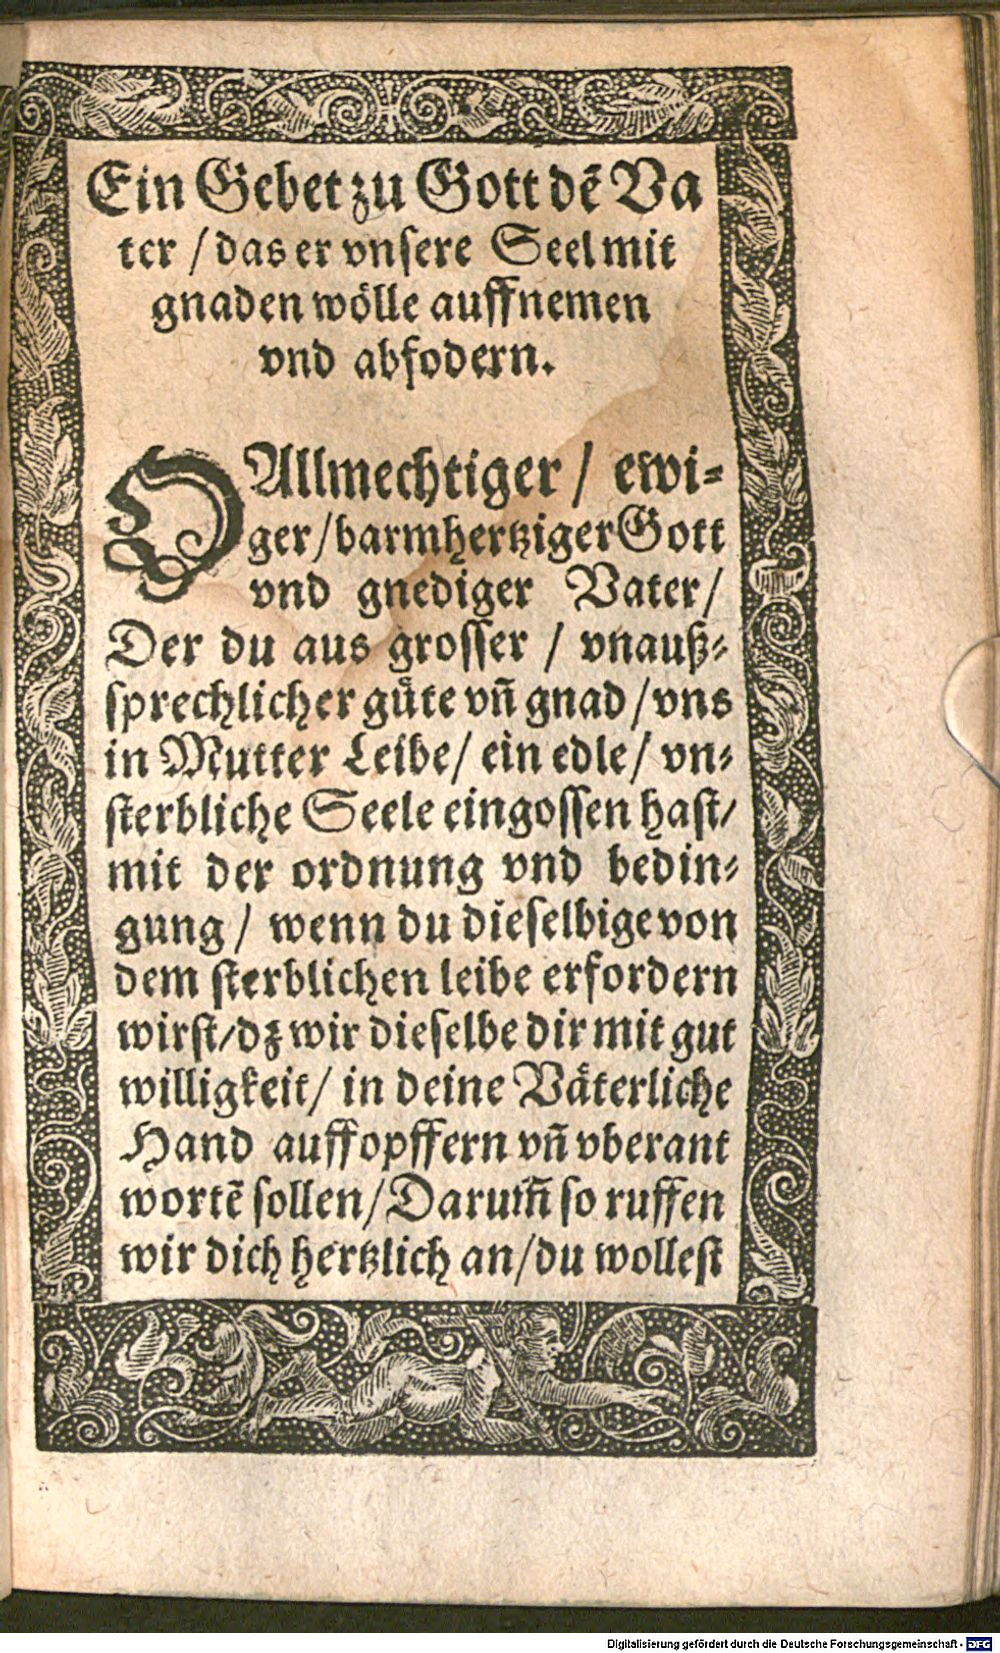 Ein Gebet zu Gott dē Va
ter / das er vnsere Seel mit
gnaden wölle auffnemen
vnd abfodern.
O Allmechtiger / ewi-
ger / barmhertziger Gott
vnd gnediger Vater /
Der du aus grosser / vnauß-
sprechlicher güte vñ gnad / vns
in Mutter Leibe / ein edle / vn-
sterbliche Seele eingossen hast /
mit der ordnung vnd bedin-
gung / wenn du dieselbige von
dem sterblichen leibe erfordern
wirst / dz wir dieselbe dir mit gut
willigkeit / in deine Väterliche
Hand auffopffern vñ vberant
wortē sollen / Darum̃ so ruffen
wir dich hertzlich an / du wollest
Digitalisierung gefördert durch die Deutsche Forschungsgemeinschaft - DFG